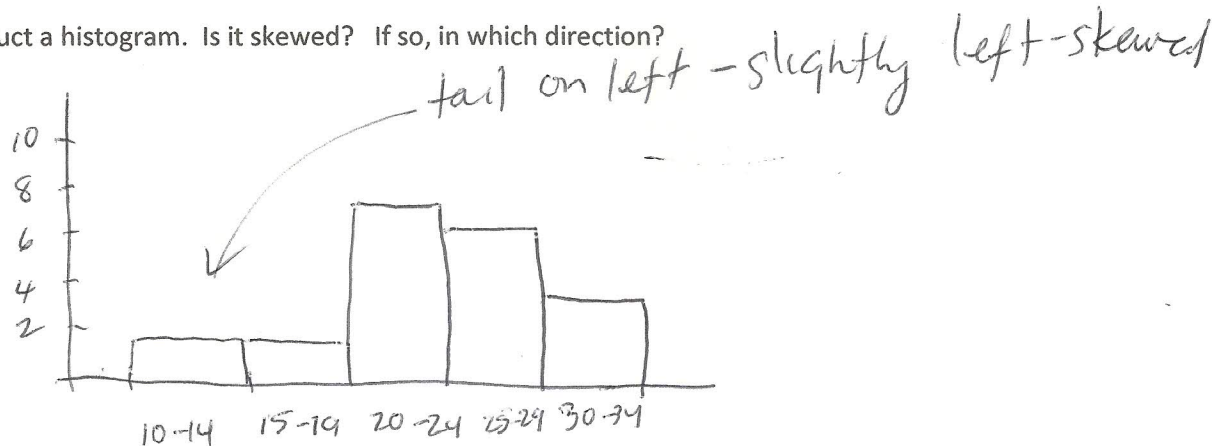 uct a histogram. Is it skewed? If so, in which direction?
tail on left - slightly left-skewed
10
8
6
4
2
10-14 15-19 20-24 25-29 30-34